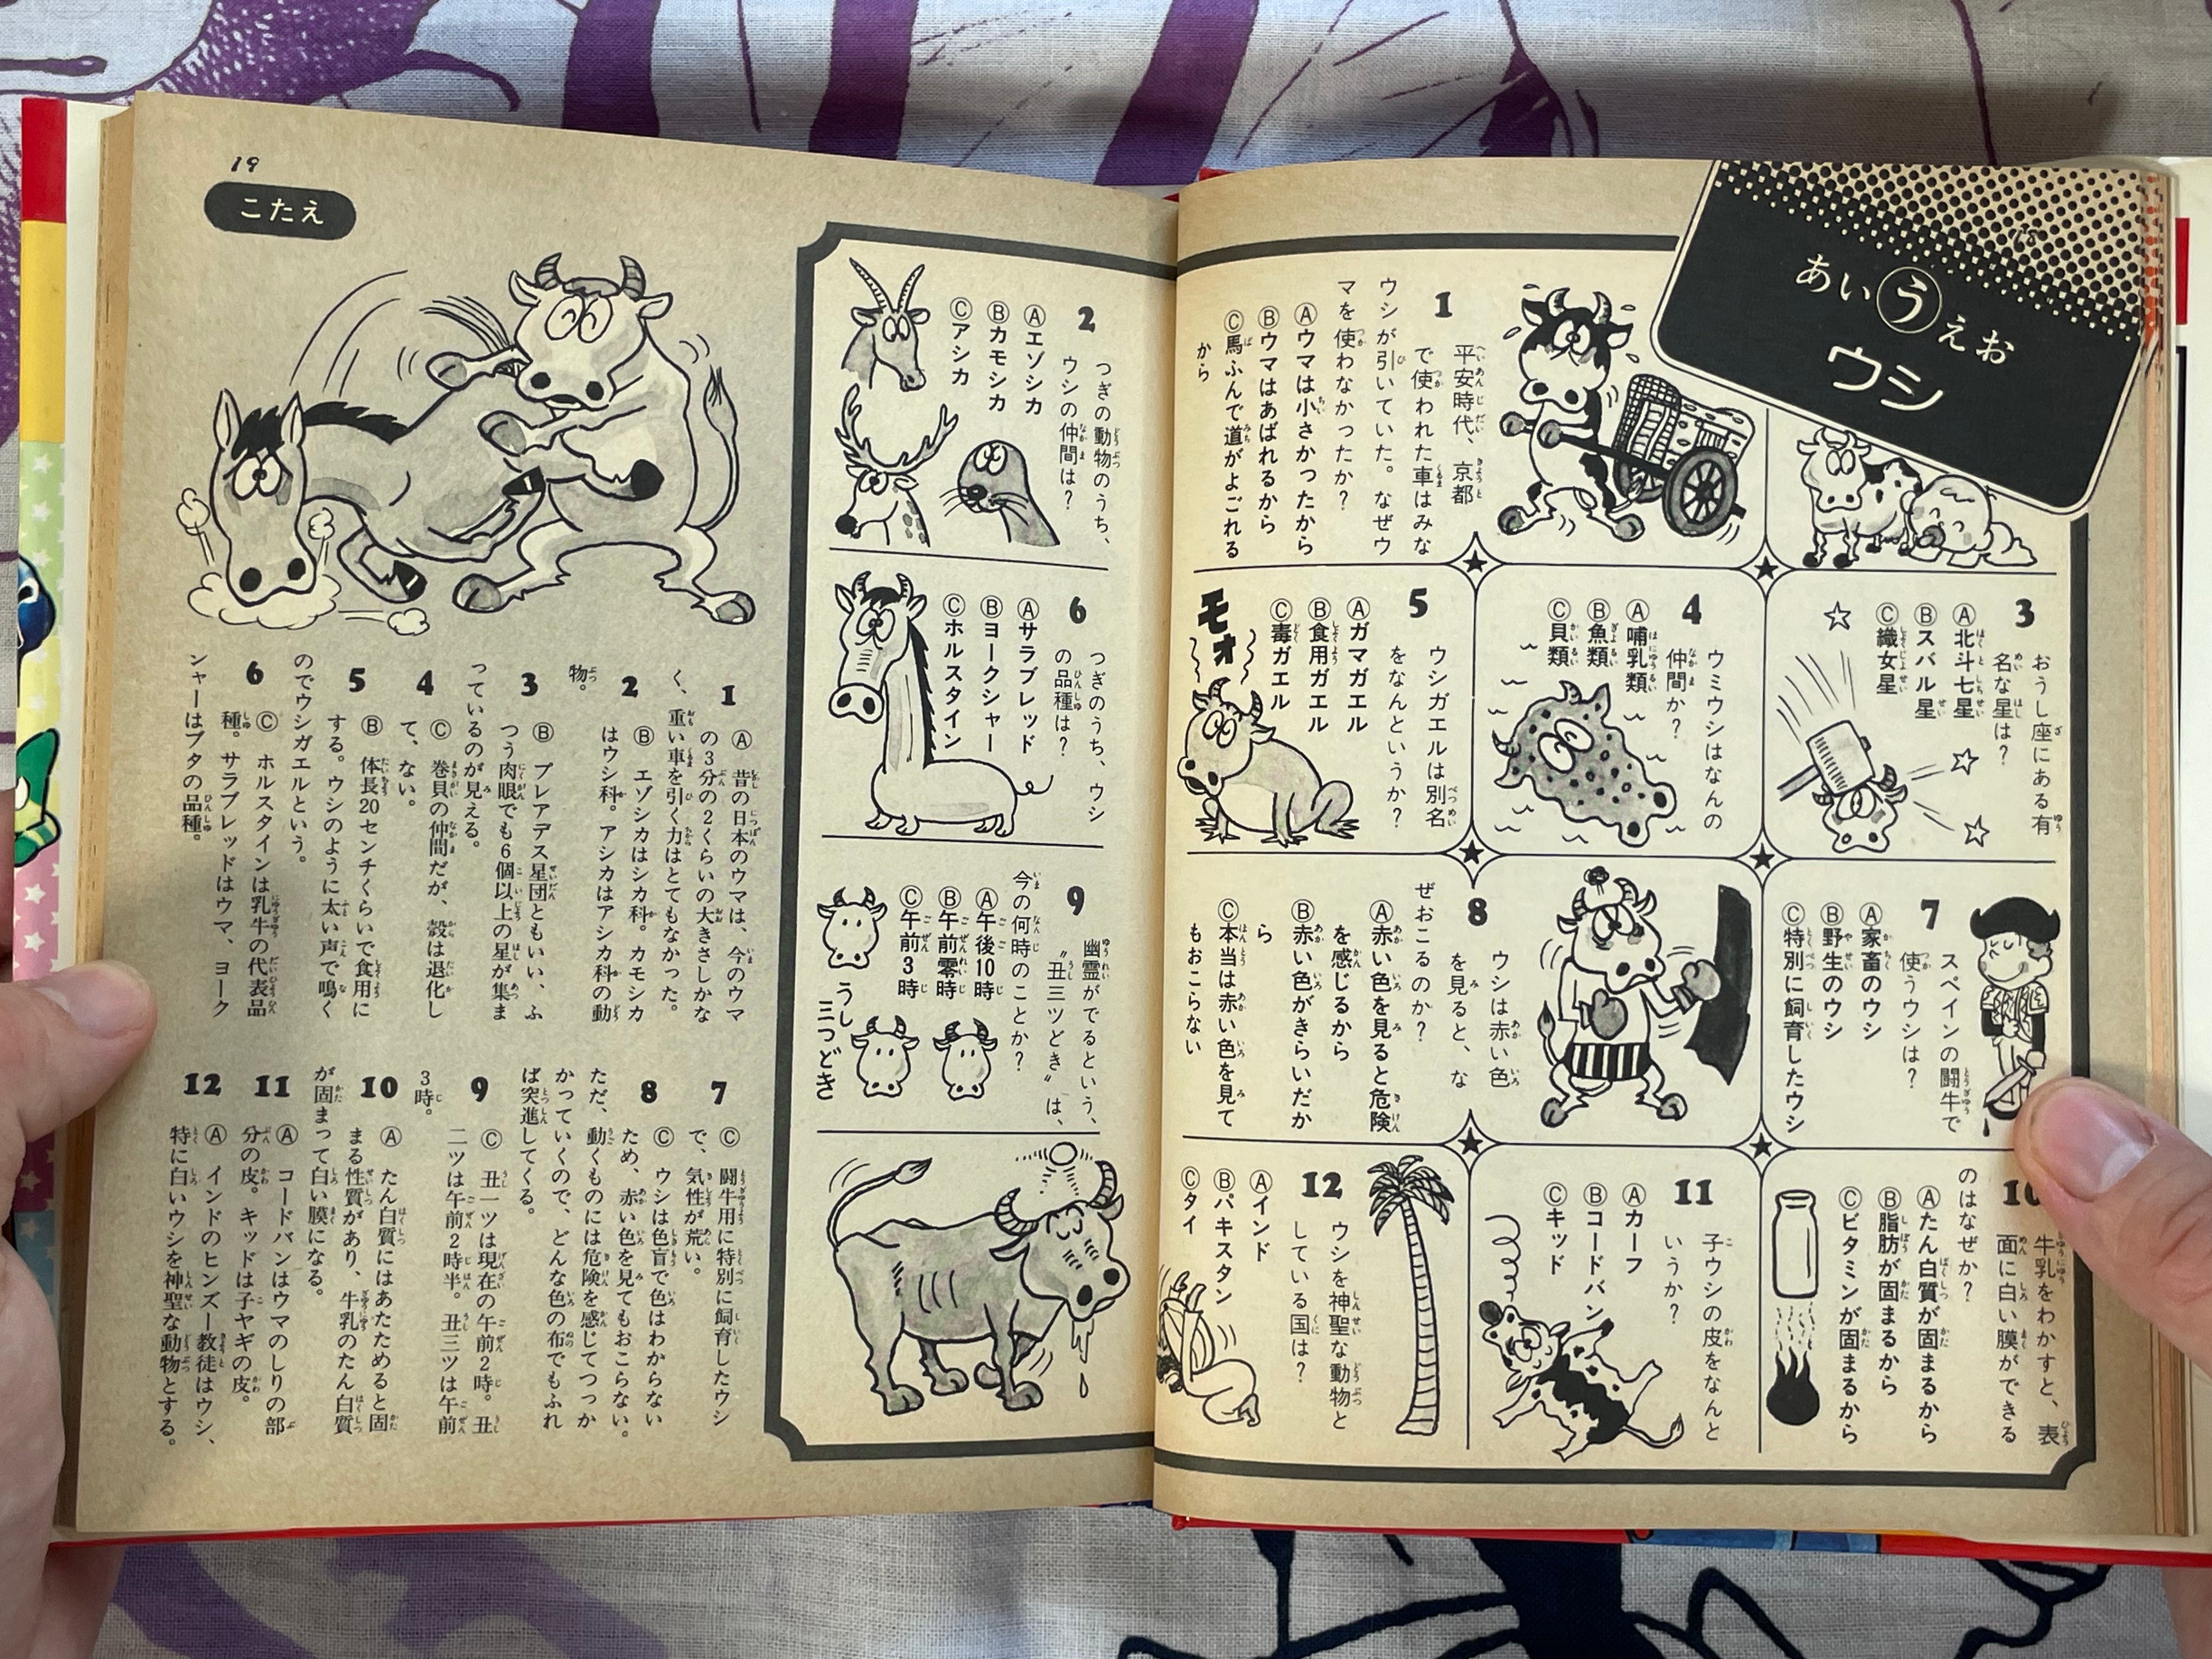 18
あいうえお
ウシ
1
平安時代、京都
で使われた車はみな
ウシが引いていた。なぜウ
マを使わなかったか？
Ⓐウマは小さかったから
Ⓑウマはあばれるから
Ⓒ馬ふんで道がよごれる
から
2
つぎの動物のうち、
ウシの仲間は？
Ⓐエゾシカ
Ⓑカモシカ
Ⓒアシカ
3
おうし座にある有
名な星は？
Ⓐ北斗七星
Ⓑスバル星
Ⓒ織女星
4
ウミウシはなんの
仲間か？
Ⓐ哺乳類
Ⓑ魚類
Ⓒ貝類
5
ウシガエルは別名
をなんというか？
Ⓐガマガエル
Ⓑ食用ガエル
Ⓒ毒ガエル
モォ
6
つぎのうち、ウシ
の品種は？
Ⓐサラブレッド
Ⓑヨークシャー
Ⓒホルスタイン
7
スペインの闘牛で
使うウシは？
Ⓐ家畜のウシ
Ⓑ野生のウシ
Ⓒ特別に飼育したウシ
8
ウシは赤い色
を見ると、な
ぜおこるのか？
Ⓐ赤い色を見ると危険
を感じるから
Ⓑ赤い色がきらいだか
ら
Ⓒ本当は赤い色を見て
もおこらない
9
幽霊がでるという、
〝丑三ツどき〟は、
今の何時のことか？
Ⓐ午後10時
Ⓑ午前零時
Ⓒ午前3時
うし
三つどき
10
牛乳をわかすと、表
面に白い膜ができる
のはなぜか？
Ⓐたん白質が固まるから
Ⓑ脂肪が固まるから
Ⓒビタミンが固まるから
11
子ウシの皮をなんと
いうか？
Ⓐカーフ
Ⓑコードバン
Ⓒキッド
12
ウシを神聖な動物と
している国は？
Ⓐインド
Ⓑパキスタン
Ⓒタイ
19
こたえ
1
Ⓐ 昔の日本のウマは、今のウマ
の3分の2くらいの大きさしかな
く、重い車を引く力はとてもなかった。
2
Ⓑ エゾシカはシカ科。カモシカ
はウシ科。アシカはアシカ科の動
物。
3
Ⓑ プレアデス星団ともいい、ふ
つう肉眼でも6個以上の星が集ま
っているのが見える。
4
Ⓒ 巻貝の仲間だが、殻は退化し
て、ない。
5
Ⓑ 体長20センチくらいで食用に
する。ウシのように太い声で鳴く
のでウシガエルという。
6
Ⓒ ホルスタインは乳牛の代表品
種。サラブレッドはウマ、ヨーク
シャーはブタの品種。
7
Ⓒ 闘牛用に特別に飼育したウシ
で、気性が荒い。
8
Ⓒ ウシは色盲で色はわからない
ため、赤い色を見てもおこらない。
ただ、動くものには危険を感じてつっか
かっていくので、どんな色の布でもふれ
ば突進してくる。
9
Ⓒ 丑一ツは現在の午前2時。丑
二ツは午前2時半。丑三ツは午前
3時。
10
Ⓐ たん白質にはあたためると固
まる性質があり、牛乳のたん白質
が固まって白い膜になる。
11
Ⓐ コードバンはウマのしりの部
分の皮。キッドは子ヤギの皮。
12
Ⓐ インドのヒンズー教徒はウシ、
特に白いウシを神聖な動物とする。